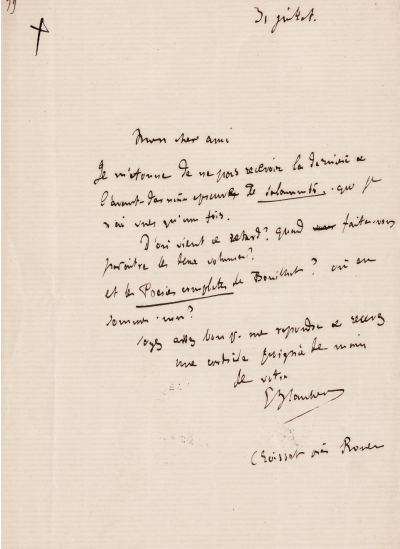 31 juillet.
Mon cher ami
Je m'étonne de ne pas recevoir la dernière &
l'avant-dernière épreuves de Salammbô, que je
n'ai vues qu'une fois.
D'où vient ce retard? quand faites-vous
paraître les deux volumes?
et les Poésies complètes de Bouilhet? où en
sommes-nous?
Soyez assez bon p. me répondre & recevez
une cordiale poignée de main
de votre
G Flaubert
Croisset près Rouen